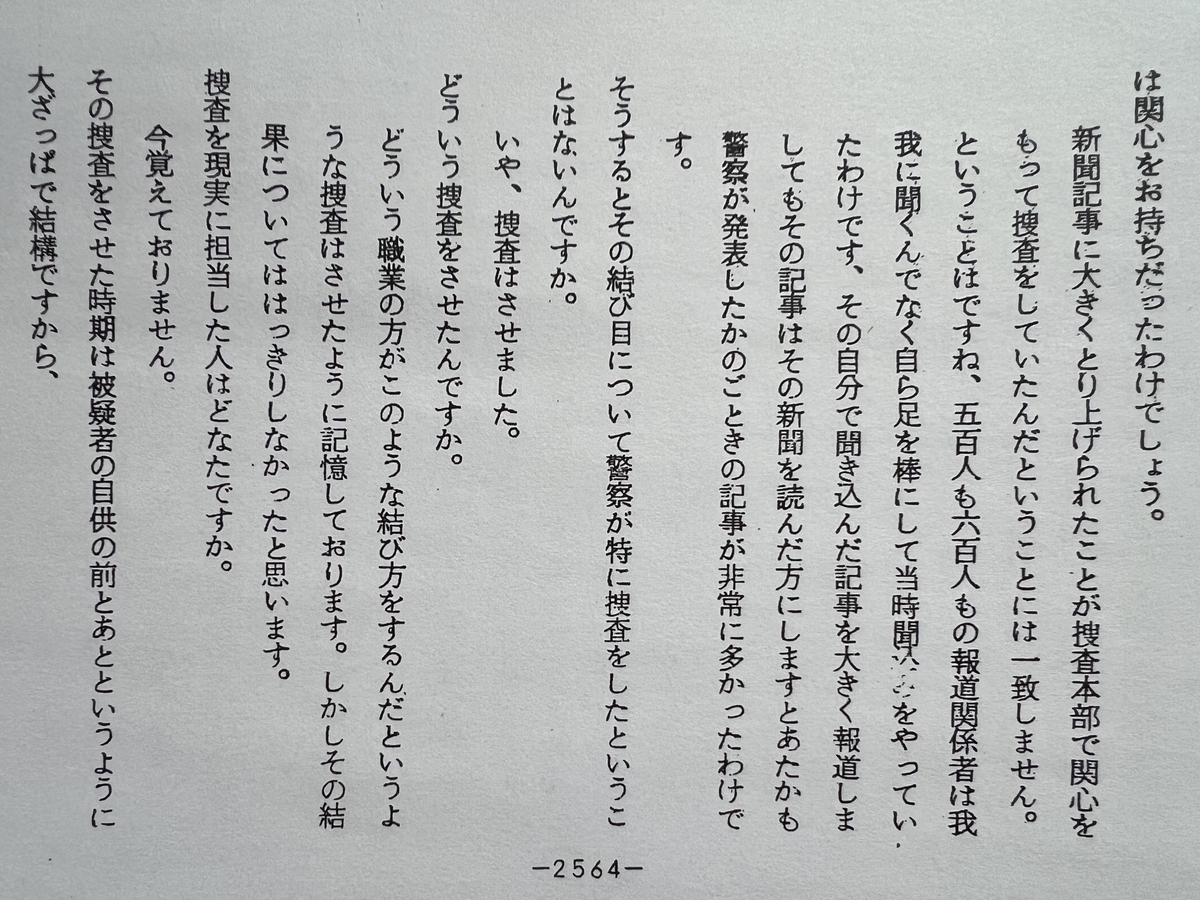 は関心をお持ちだったわけでしょう。
新聞記事に大きくとり上げられたことが捜査本部で関心を
もって捜査をしていたんだということには一致しません。
ということはですね、五百人も六百人もの報道関係者は我
我に聞くんでなく自ら足を棒にして当時聞込みをやってい
たわけです、その自分で聞き込んだ記事を大きく報道しま
してもその記事はその新聞を読んだ方にしますとあたかも
警察が発表したかのごときの記事が非常に多かったわけで
す。
そうするとその結び目について警察が特に捜査をしたというこ
とはないんですか。
いや、捜査はさせました。
どういう捜査をさせたんですか。
どういう職業の方がこのような結び方をするんだというよ
うな捜査はさせたように記憶しております。しかしその結
果についてははっきりしなかったと思います。
捜査を現実に担当した人はどなたですか。
今覚えておりません。
その捜査をさせた時期は被疑者の自供の前とあとというように
大ざっぱで結構ですから、
—2564—